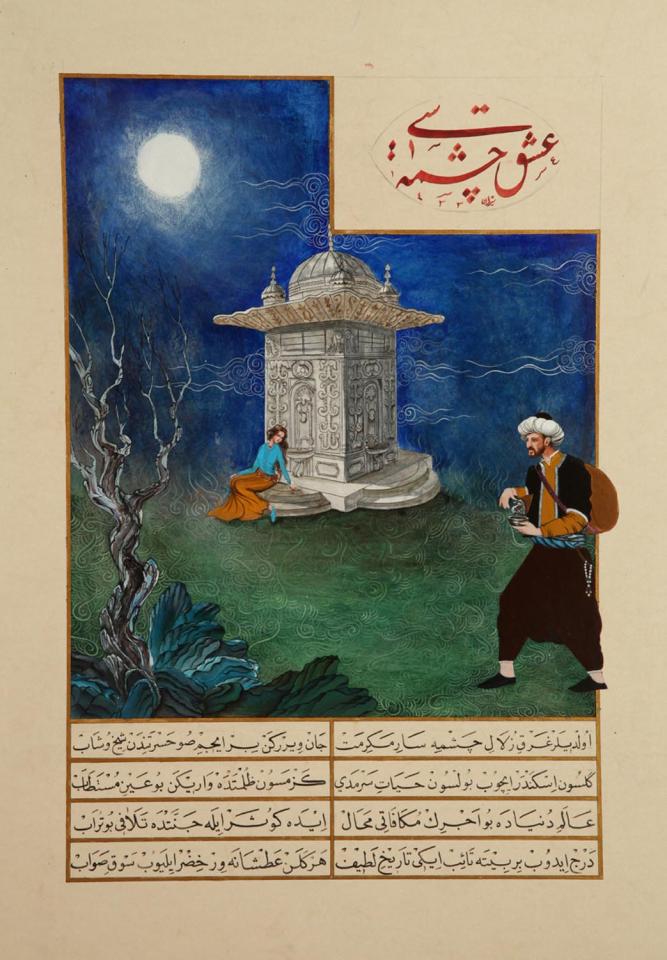 عشق چشمه سی
١٤٣٣
اولدیلر غرق زلال چشمه سار مکرمت جان ویررکن بر ایچم صو حسرتندن شیخ و شاب
گلسون اسکندر ایچوب بولسون حیات سرمدی کزمسون ظلمتده واریکن بو عین مستطاب
عالم دنیاده بو اجرك مکافاتی محال ایده کوثر ایله جنتده تلافی بوتراب
درج ایدوب بر بیته تائب ایکی تاریخ لطیف هر کلن عطشانه ویر خضر ایلیوب سوق صواب